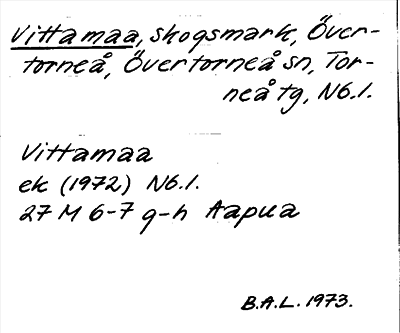 Vittamaa, skogsmark, Över-
torneå, Övertorneå sn, Tor-
neå tg, N6.l.
Vittamaa
ek (1972) N6.l.
27 M 6-7 g-h Aapua
B.A.L. 1973.